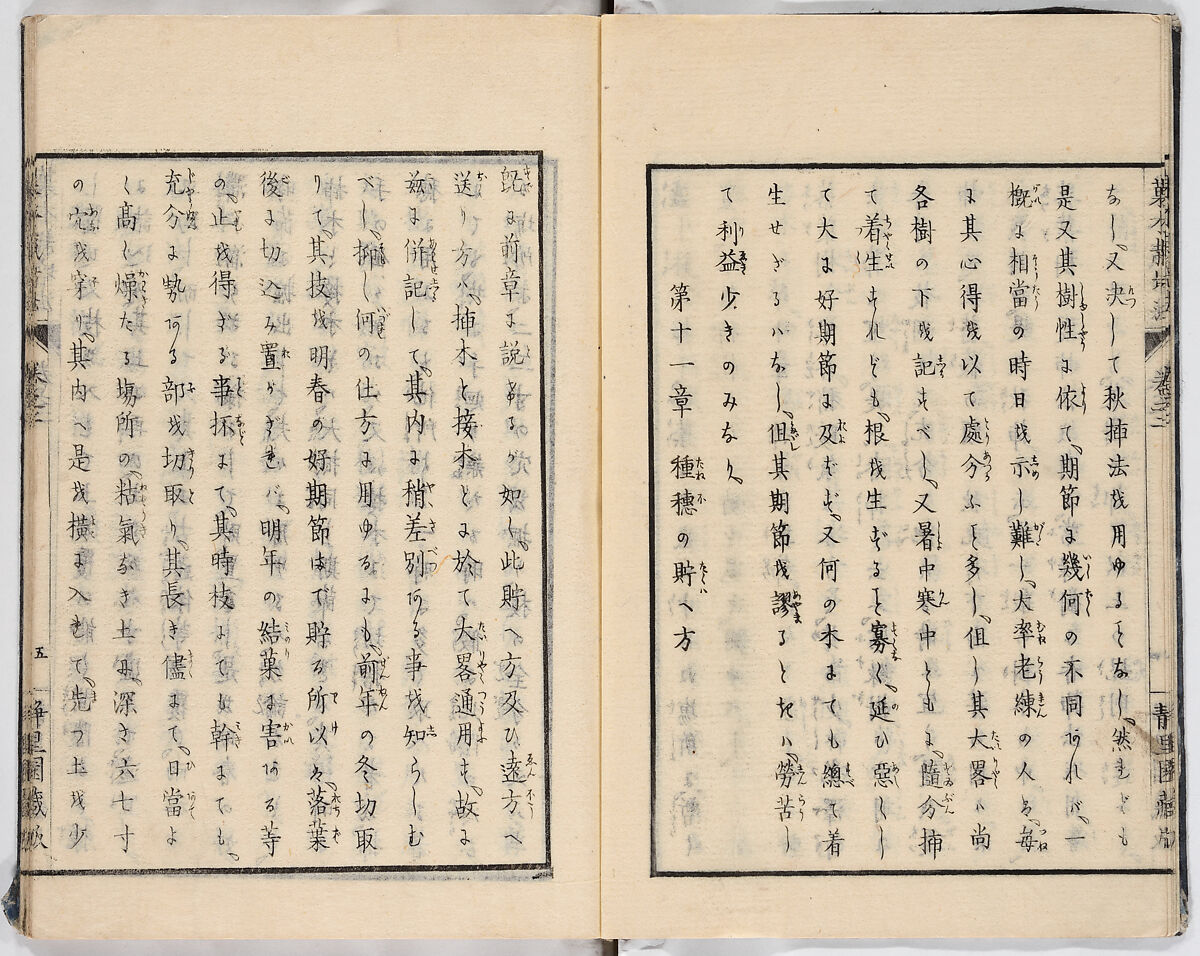 なし、又決して秋挿法を用ゆるヿなし、然れども
是又其樹性に依て、期節に幾何の不同あれバ、一
概に相當の時日を示し難し、大率老練の人は、毎
に其心得を以て處分ふヿ多し、但し其大畧ハ尚
各樹の下に記すべし、又暑中寒中とも、隨分挿
て着生すれども、根を生ずるヿ寡く、延ひ惡しく
て大に好期節に及ばず、又何の木にても總て着
生せざるハなし、但其期節を謬るときハ、勞苦し
て利益少きのみなり、
第十一章　種穗の貯へ方
既に前章に説あるが如し、此貯へ方及ひ遠方へ
送り方ハ、挿木と接木とに於て大畧通用す、故に
茲に併記して、其内に稍差別ある事を知らしむ
べし、抑し何の仕方に用ゆるにも、前年の冬切取
りて、其技を明春の好期節まで貯る所以は、落葉
後に切込み置かざれバ、明年の結菓に害ある等
の、止を得ざる事抔にて、其時枝にても幹にても、
充分に勢ある部を切取り、其長き儘にて、日當よ
く高く燥たる塲所の、粘氣なき土に、深さ六七寸
の穴を穿り、其内へ是を横に入れて、先つ土を少
五